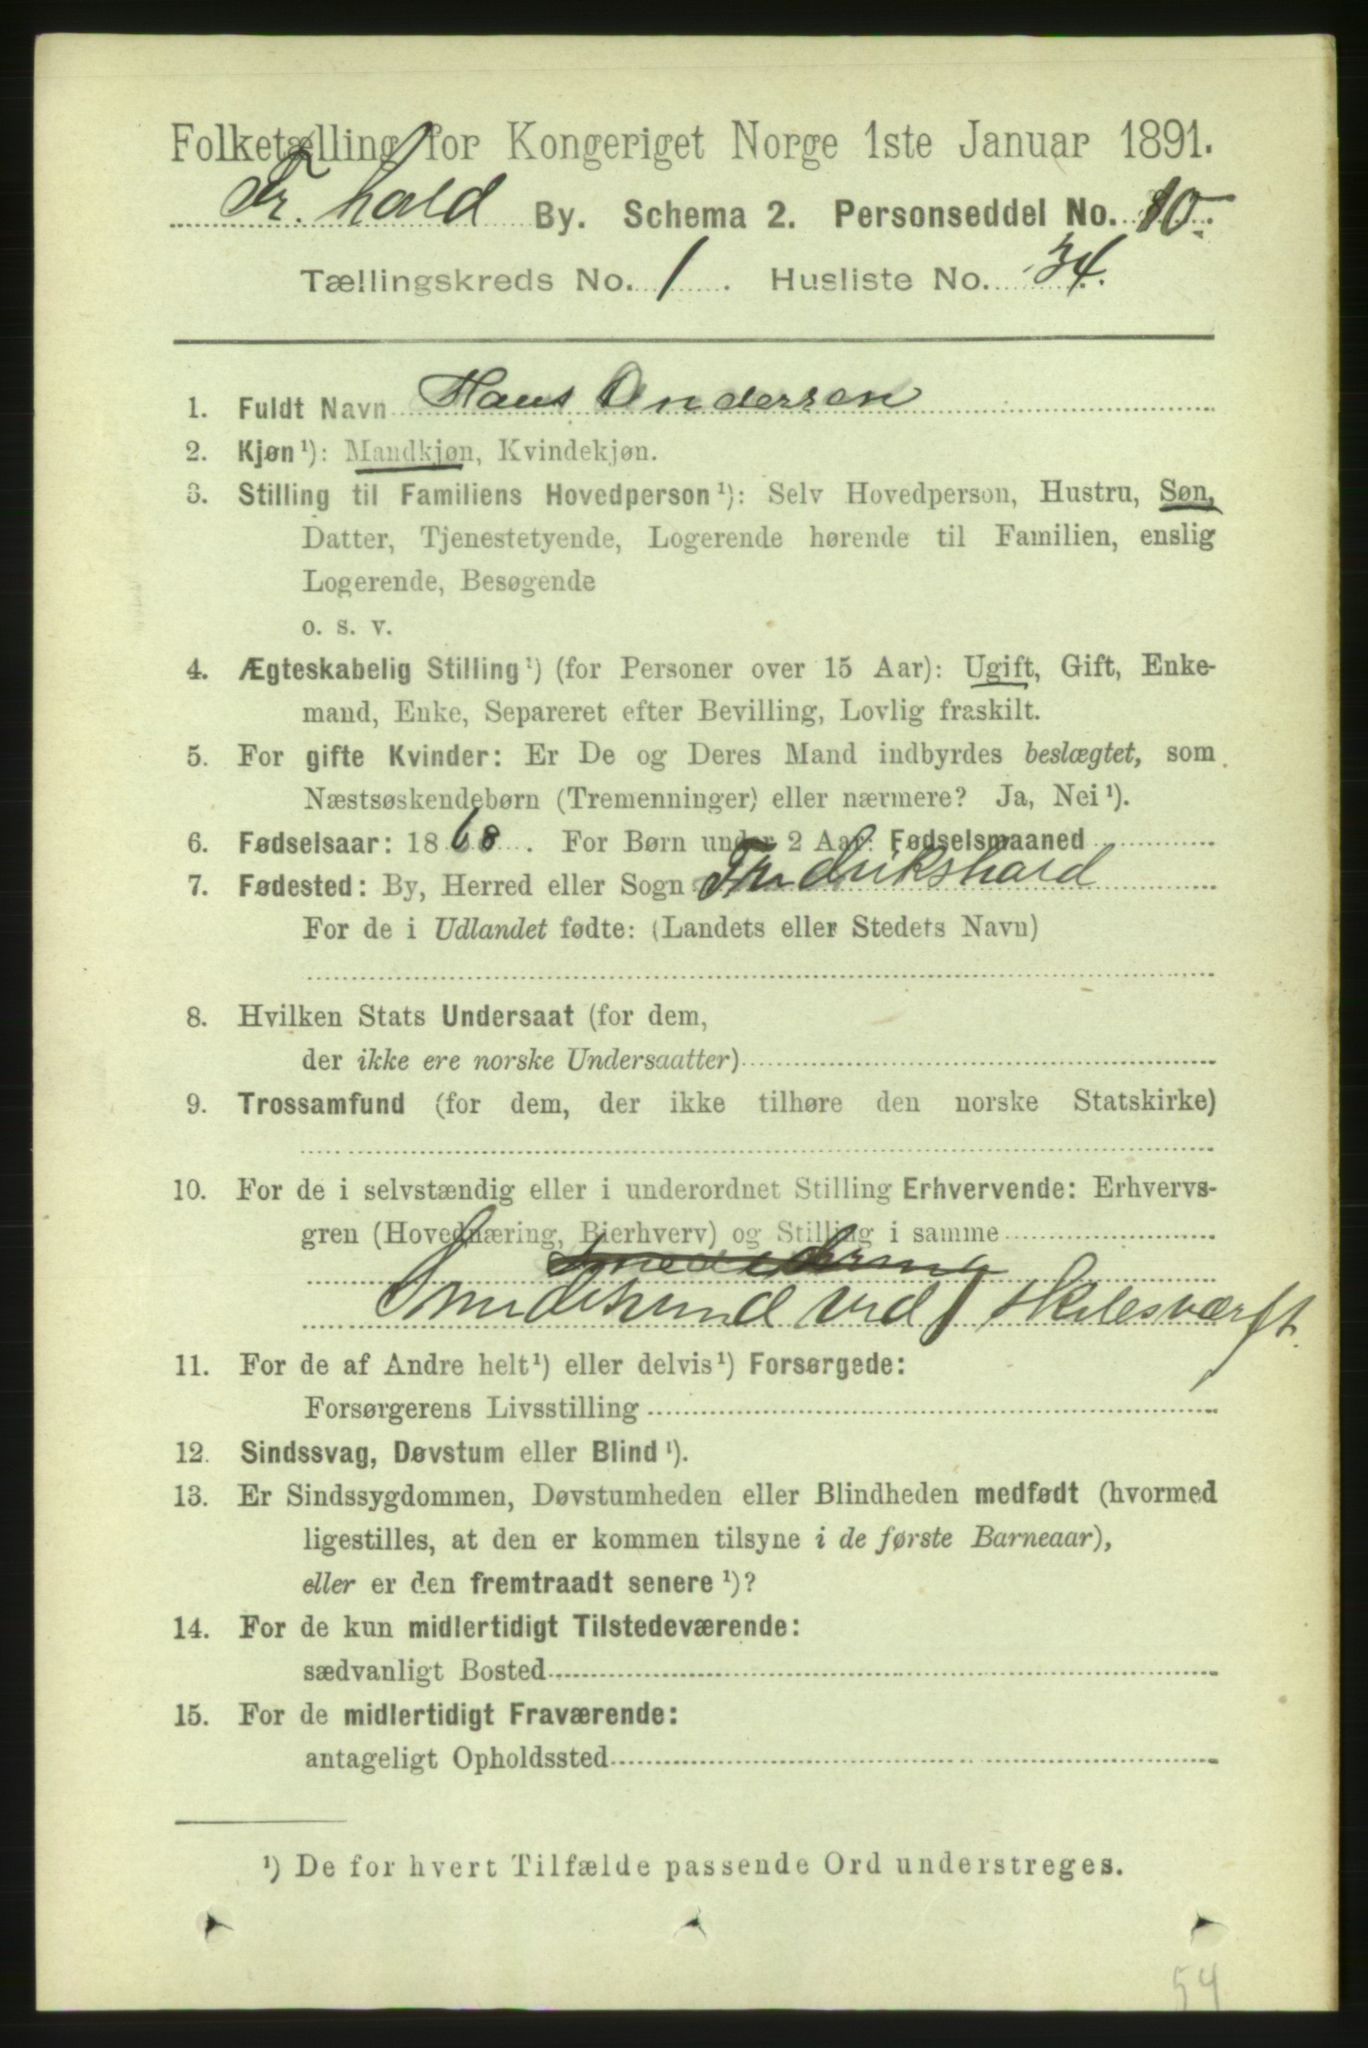 Folketælling for Kongeriget Norge 1ste Januar 1891.
Fr.hald By. Schema 2. Personseddel No. 10.
Tællingskreds No. 1. Husliste No. 34.
1. Fuldt Navn Hans Andersen
2. Kjøn¹): Mandkjøn, Kvindekjøn.
3. Stilling til Familiens Hovedperson¹): Selv Hovedperson, Hustru, Søn,
Datter, Tjenestetyende, Logerende hørende til Familien, enslig
Logerende, Besøgende
o. s. v.
4. Ægteskabelig Stilling¹) (for Personer over 15 Aar): Ugift, Gift, Enke-
mand, Enke, Separeret efter Bevilling, Lovlig fraskilt.
5. For gifte Kvinder: Er De og Deres Mand indbyrdes beslægtet, som
Næstsøskendebørn (Tremenninger) eller nærmere? Ja, Nei¹).
6. Fødselsaar: 1868. For Børn under 2 Aar: Fødselsmaaned
7. Fødested: By, Herred eller Sogn Fredrikshald
For de i Udlandet fødte: (Landets eller Stedets Navn)
8. Hvilken Stats Undersaat (for dem,
der ikke ere norske Undersaatter)
9. Trossamfund (for dem, der ikke tilhøre den norske Statskirke)
10. For de i selvstændig eller i underordnet Stilling Erhvervende: Erhvervs-
gren (Hovednæring, Bierhverv) og Stilling i samme
Smedesvend ved Skibsværft.
11. For de af Andre helt¹) eller delvis¹) Forsørgede:
Forsørgerens Livsstilling
12. Sindssvag, Døvstum eller Blind¹).
13. Er Sindssygdommen, Døvstumheden eller Blindheden medfødt (hvormed
ligestilles, at den er kommen tilsyne i de første Barneaar),
eller er den fremtraadt senere¹)?
14. For de kun midlertidigt Tilstedeværende:
sædvanligt Bosted
15. For de midlertidigt Fraværende:
antageligt Opholdssted
¹) De for hvert Tilfælde passende Ord understreges.
54